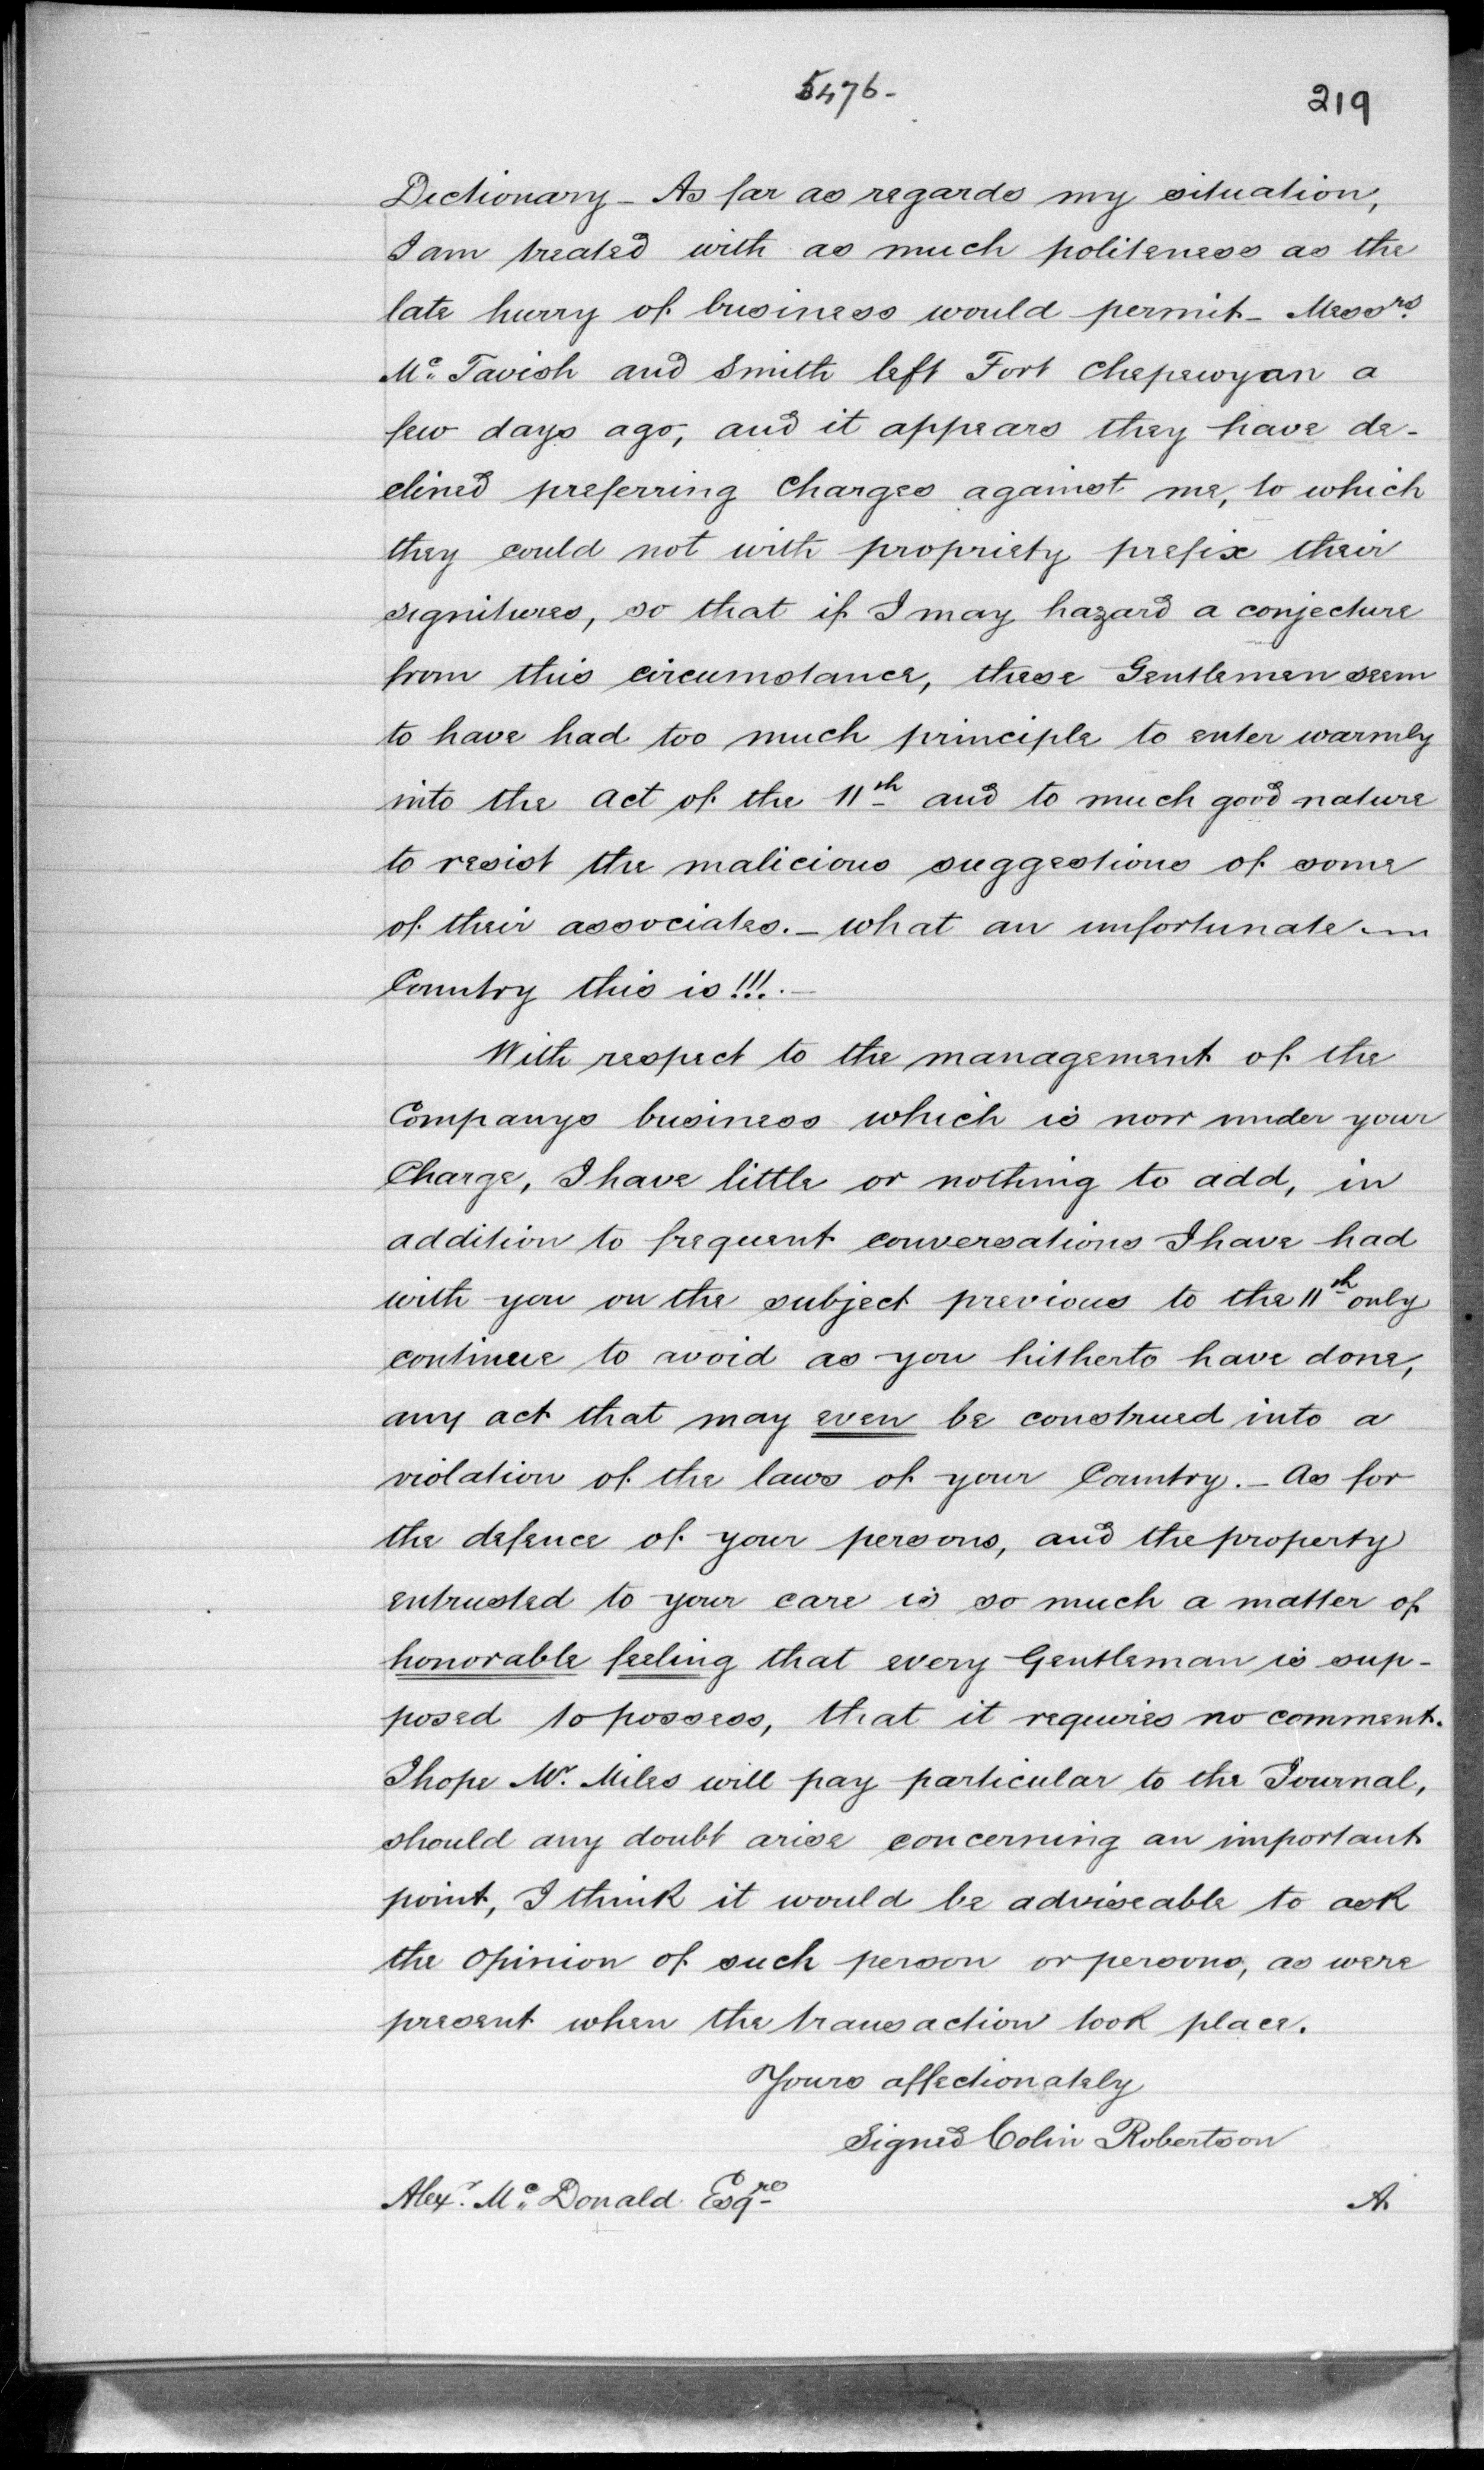 5476-
219
Dictionary - As far as regards my situation,
I am treated with as much politeness as the
late hurry of business would permit - Messrs.
Mc. Tavish and Smith left Fort Chepewyan a
few days ago, and it appears they have de-
clined preferring Charges against me, to which
they could not with propriety prefix their
signitures, so that if I may hazard a conjecture
from this circumstance, these Gentlemen seem
to have had too much principle to enter warmly
into the act of the 11th and to much good nature
to resist the malicious suggestions of some
of their associates. - what an unfortunate
Country this is!!!. -
With respect to the management of the
Companys business which is now under your
Charge, I have little or nothing to add, in
addition to frequent conversations I have had
with you on the subject previous to the 11th only
continue to avoid as you hitherto have done,
any act that may even be construed into a
violation of the laws of your Country. - As for
the defence of your persons, and the property
entrusted to your care is so much a matter of
honorable feeling that every Gentleman is sup-
posed to possess, that it requires no comment.
I hope Mr. Miles will pay particular to the Journal,
should any doubt arise concerning an important
point, I think it would be adviseable to ask
the opinion of such person or persons, as were
present when the transaction took place.
Yours affectionately
Signed Colin Robertson
Alexr. Mc. Donald Esqre
A.